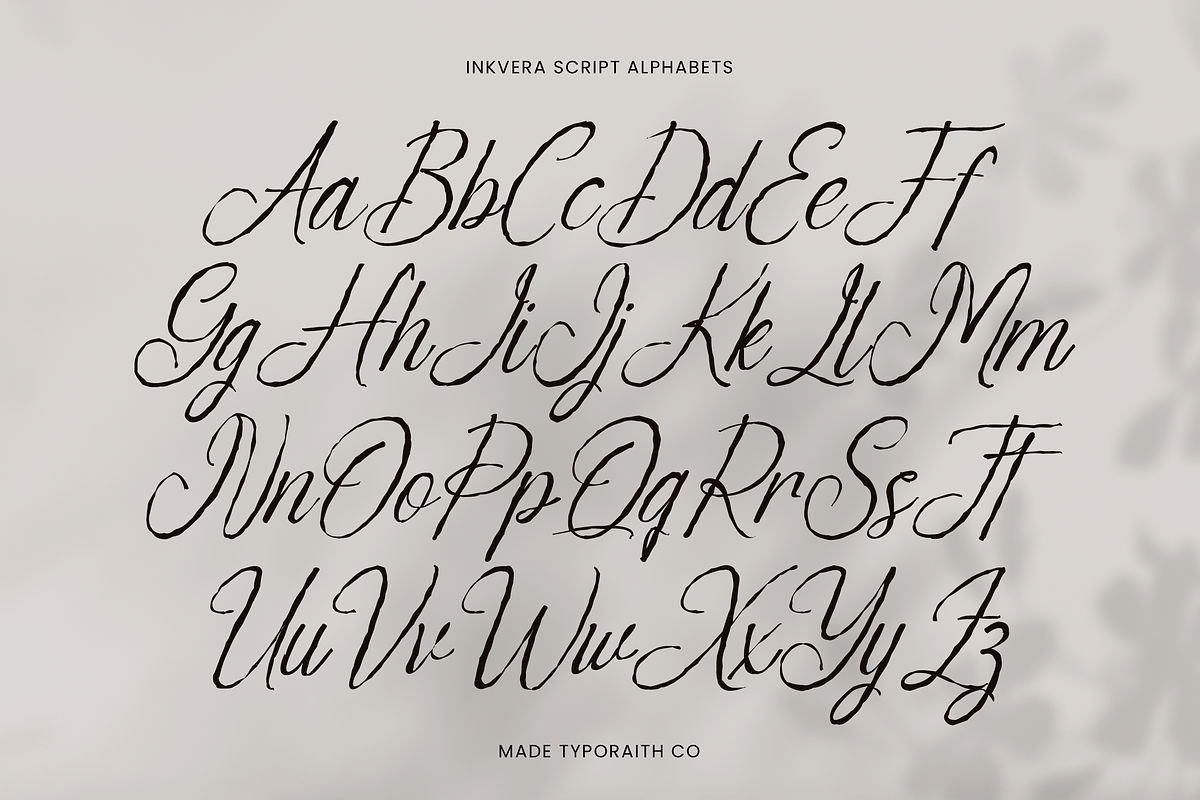 INKVERA SCRIPT ALPHABETS
Aa Bb Cc Dd Ee Ff
Gg Hh Ii Jj Kk Ll Mm
Nn Oo Pp Qq Rr Ss Tt
Uu Vv Ww Xx Yy Zz
MADE TYPORAITH CO